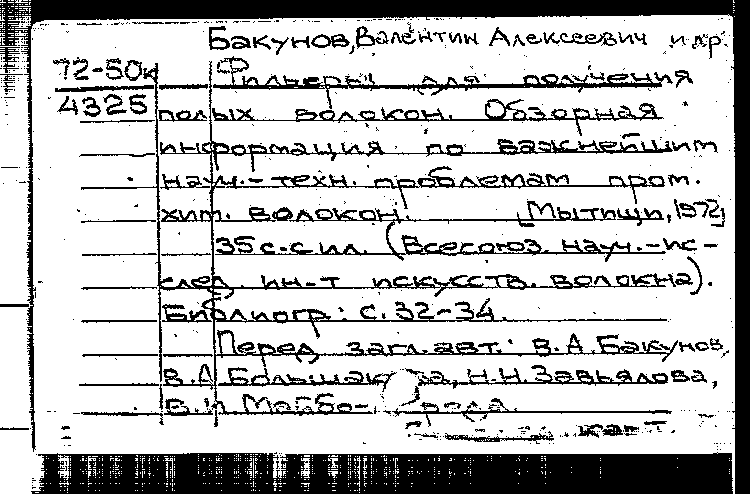 Бакунов, Валентин Алексеевич и др.
72-50к
4325
Фильеры для получения
полых волокон. Обзорная
информация по важнейшим
науч.-техн. проблемам пром.
хим. волокон. [Мытищи, 1972]
35 с. с ил. (Всесоюз. науч.-ис-
след. ин-т искусств. волокна).
Библиогр.: с. 32-34.
Перед загл. авт.: В.А. Бакунов,
В.А. Большакова, Н.Н. Завьялова,